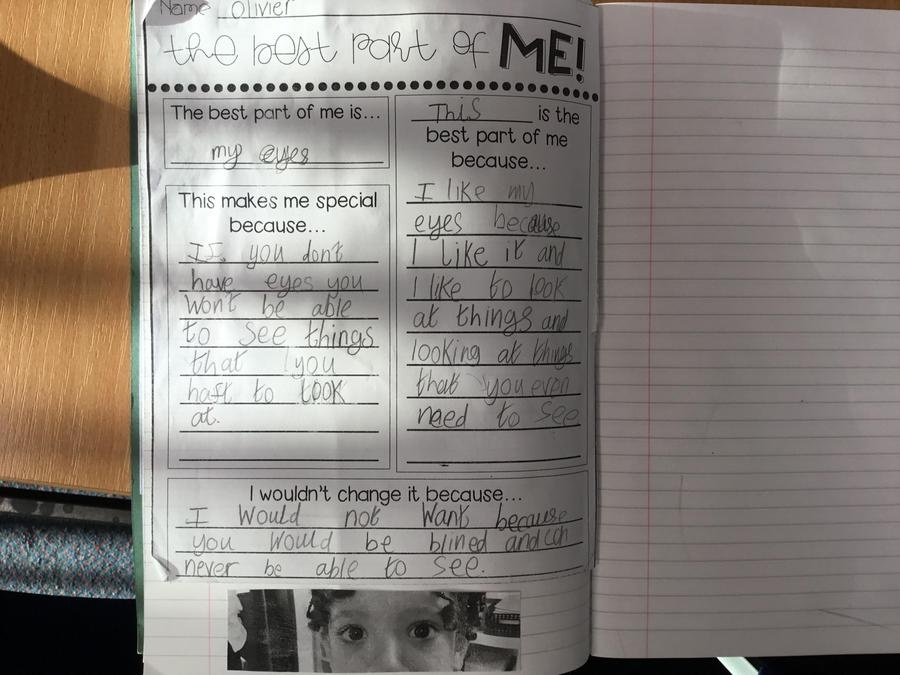 Name Olivier
the best part of ME!
The best part of me is...
my eyes
This makes me special
because...
If you don't
have eyes you
Won't be able
to see things
that you
haft to look
at.
This is the
best part of me
because...
I like my
eyes because
I Like it and
I like to look
at things and
looking at things
that you even
need to see
I wouldn't change it because...
I Would not Want because
you Would be blined and can
never be able to see.